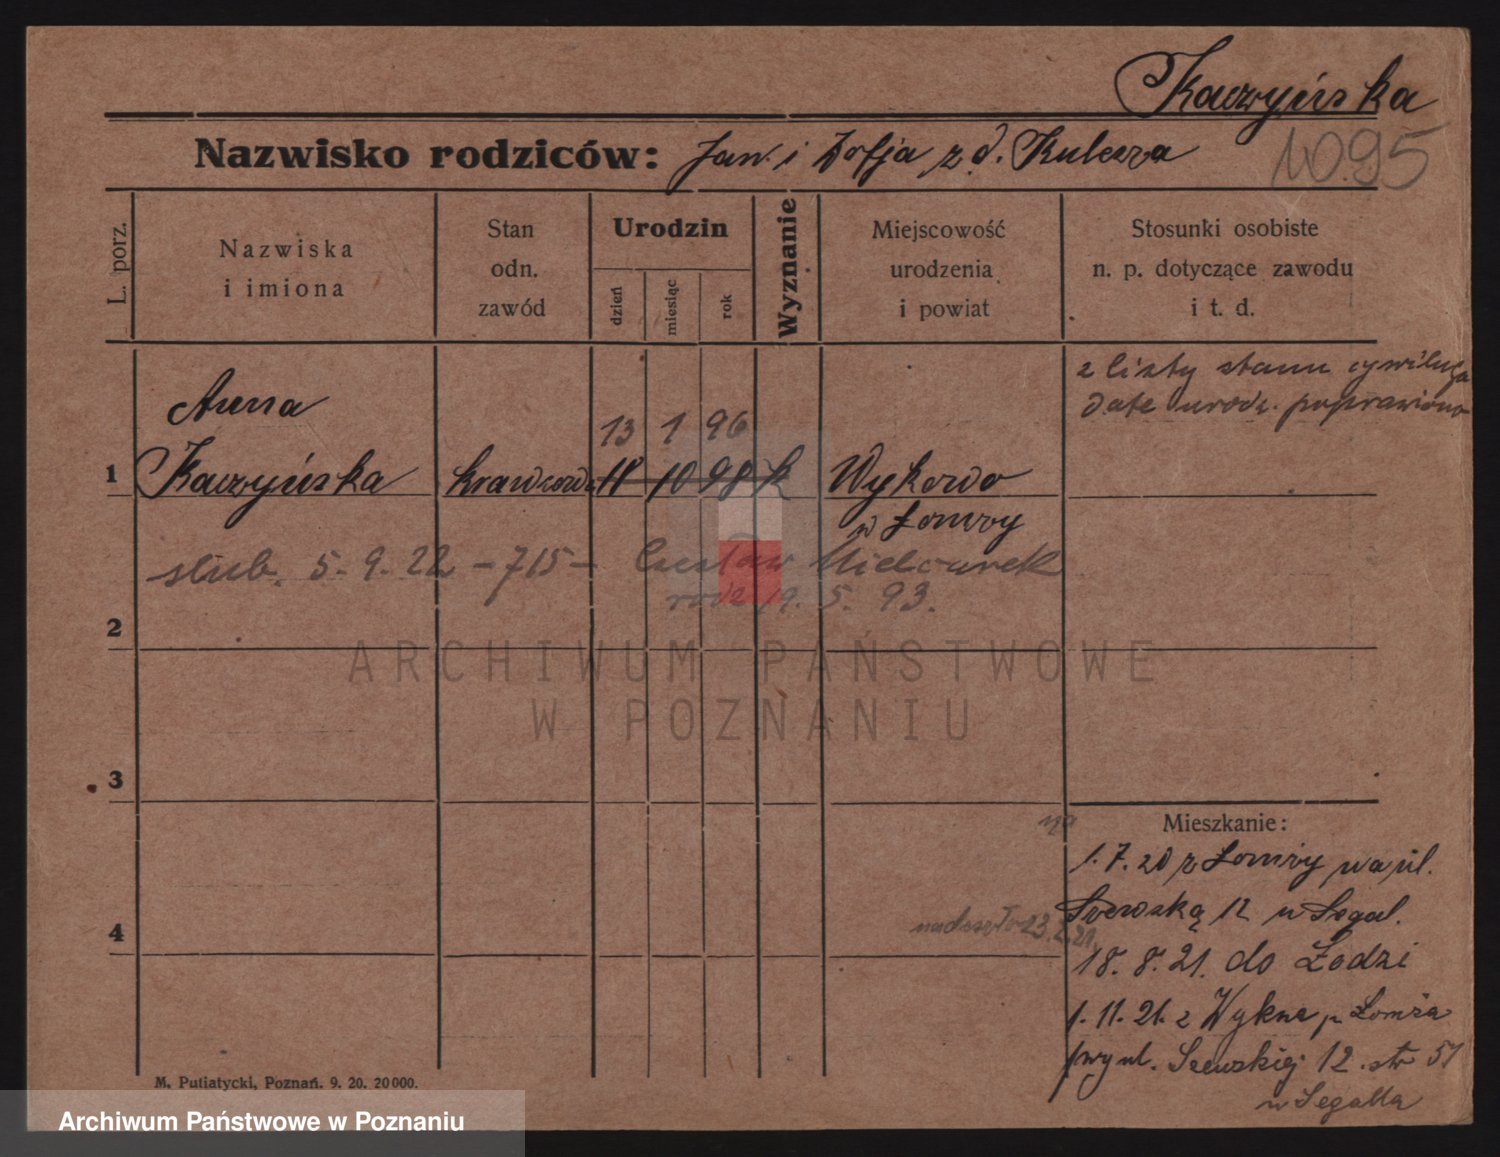 Kaczyńska
1095
Nazwisko rodziców: Jan i Zofja z d. Kulesza
L. porz.
Nazwiska i imiona
Stan odn. zawód
Urodzin
dzień
miesiąc
rok
Wyznanie
Miejscowość urodzenia i powiat
Stosunki osobiste n. p. dotyczące zawodu i t. d.
z listy stanu cywilnego
datę urodz. poprawiono
Anna
13 1 96
1 Kaczyńska krawcowa 11 10 98 k Wykowo
w Łomży
ślub. 5. 9. 22 - 715 - Czesław Mielcarek
rodz 19. 5. 93.
2
ARCHIWUM PAŃSTWOWE
W POZNANIU
3
Mieszkanie:
1. 7. 20 z Łomży na ul.
Szewską 12 u Segal.
nadeszło 23.2.21.
4
18. 8. 21. do Łodzi
1. 11. 21. z Wykna p Łomża
przy ul. Szewskiej 12. str 51
u Segałła
M. Putiatycki, Poznań. 9. 20. 20000.
Archiwum Państwowe w Poznaniu